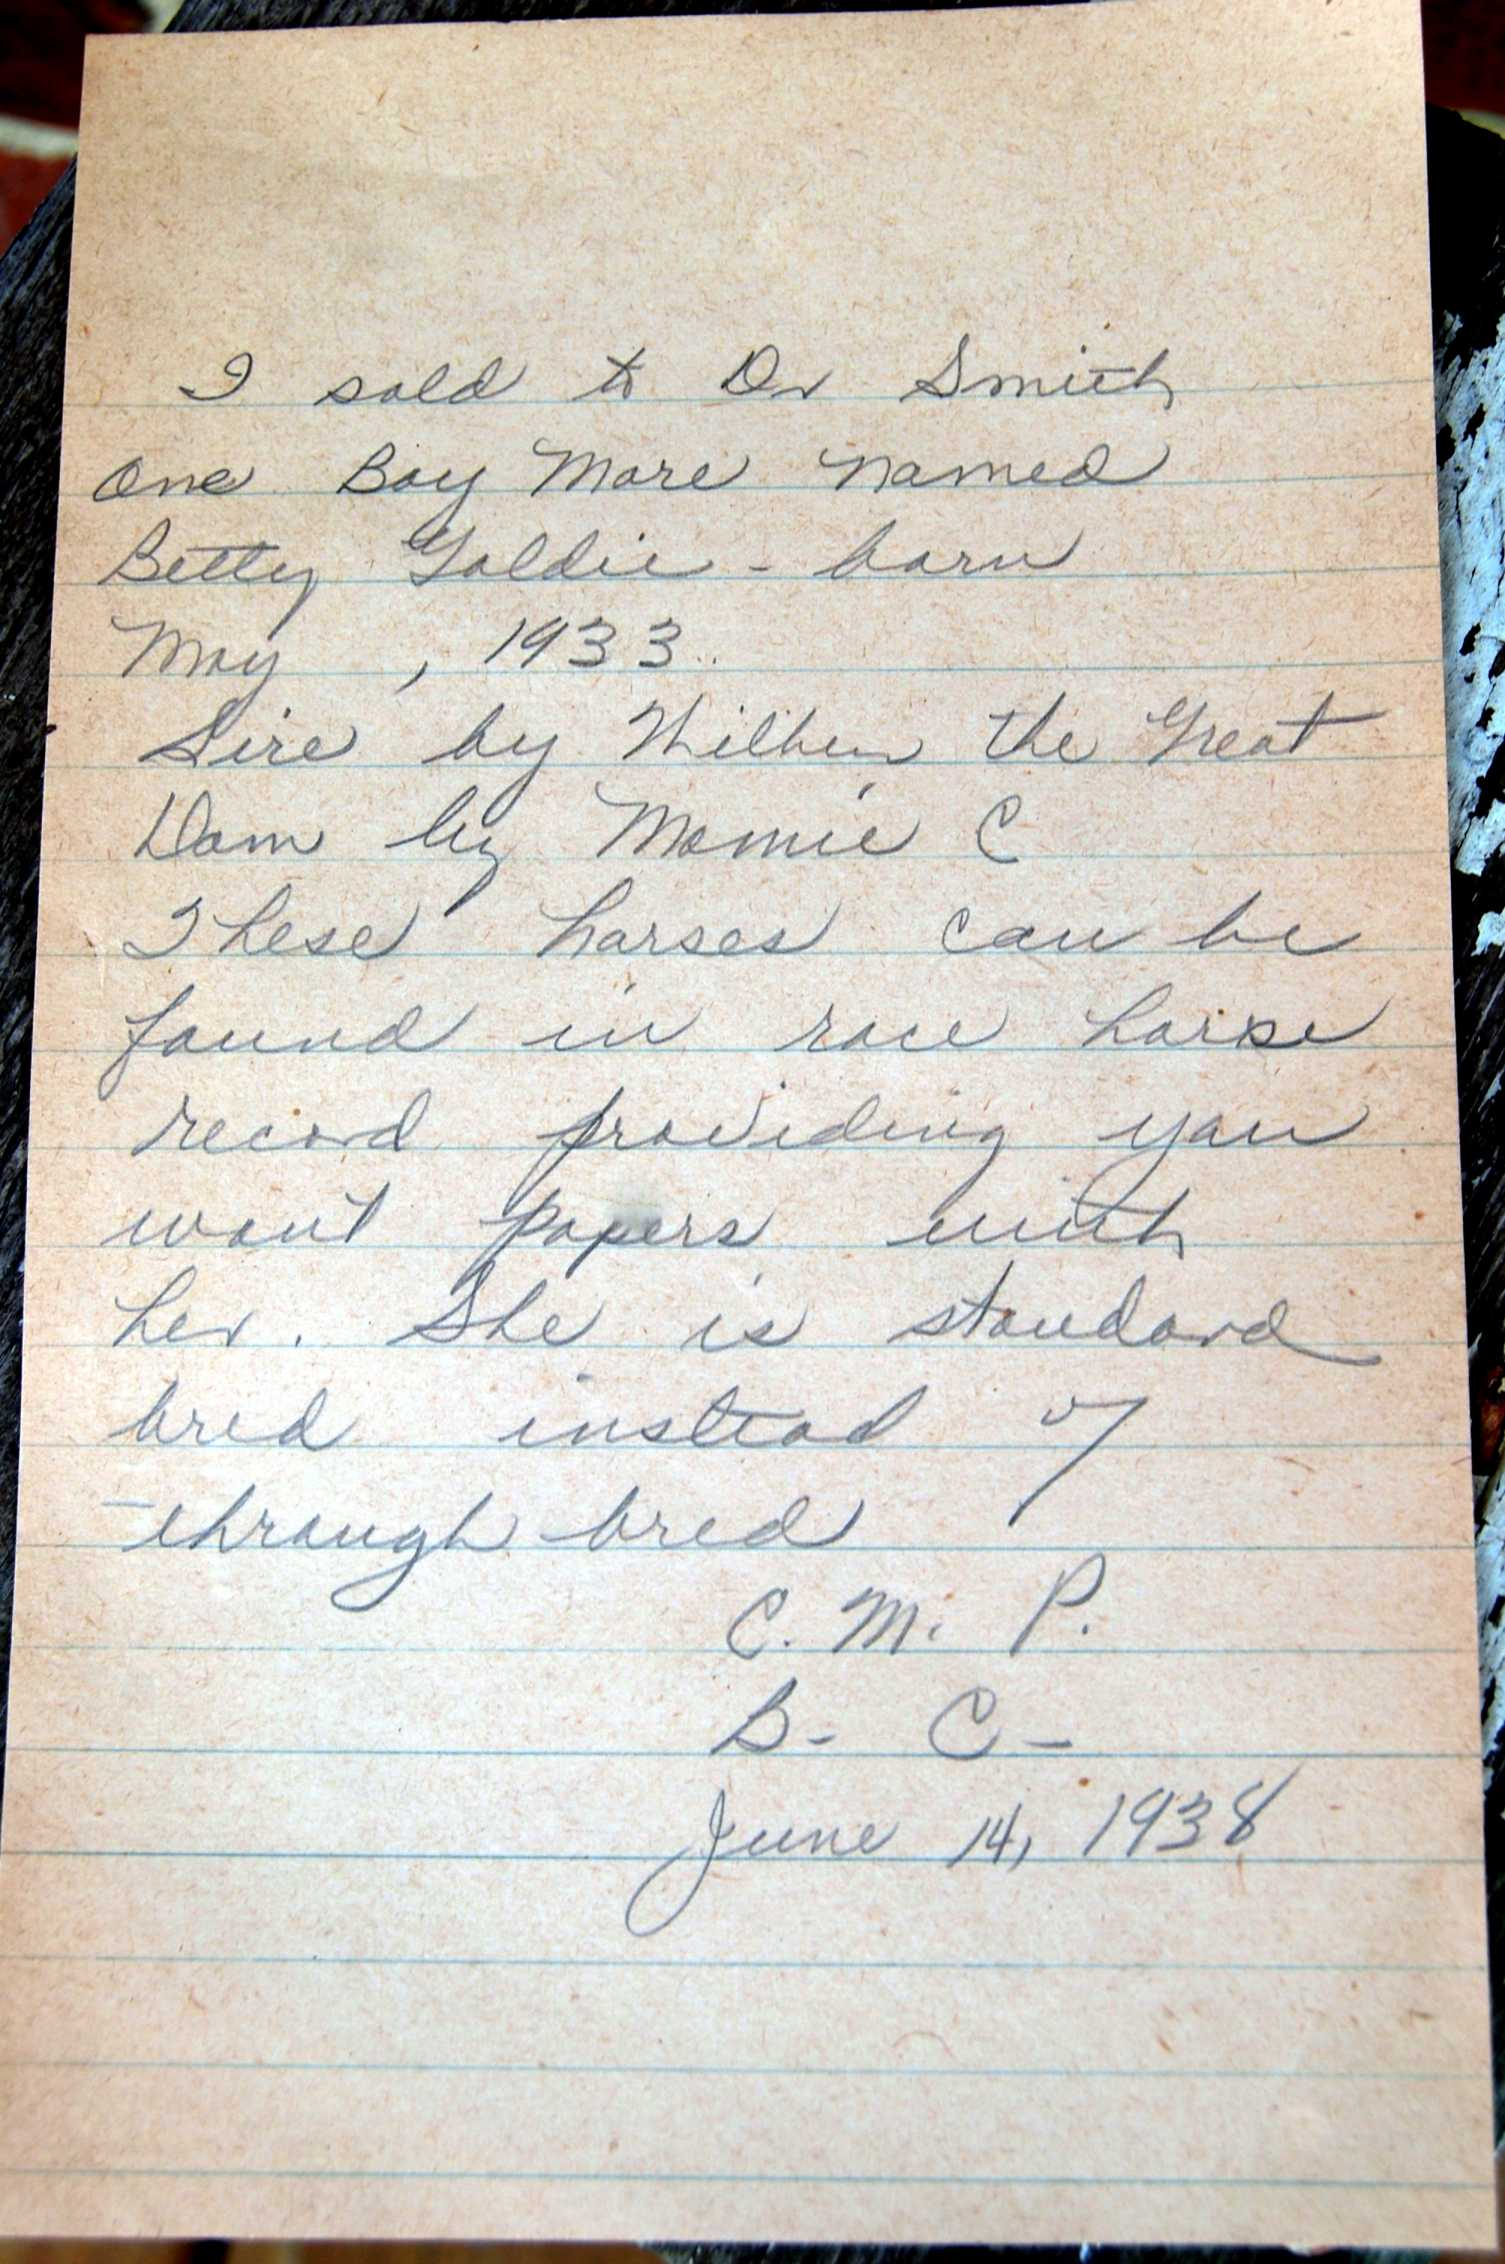 I sold to Dr Smith
one Bay Mare named
Betty Goldie - born
May , 1933.
Sire by Wilbur the Great
Dam by Mamie C
These horses can be
found in race horse
record providing you
want papers with
her. She is standard
bred instead of
through bred
C. M. P.
B- C-
June 14, 1938